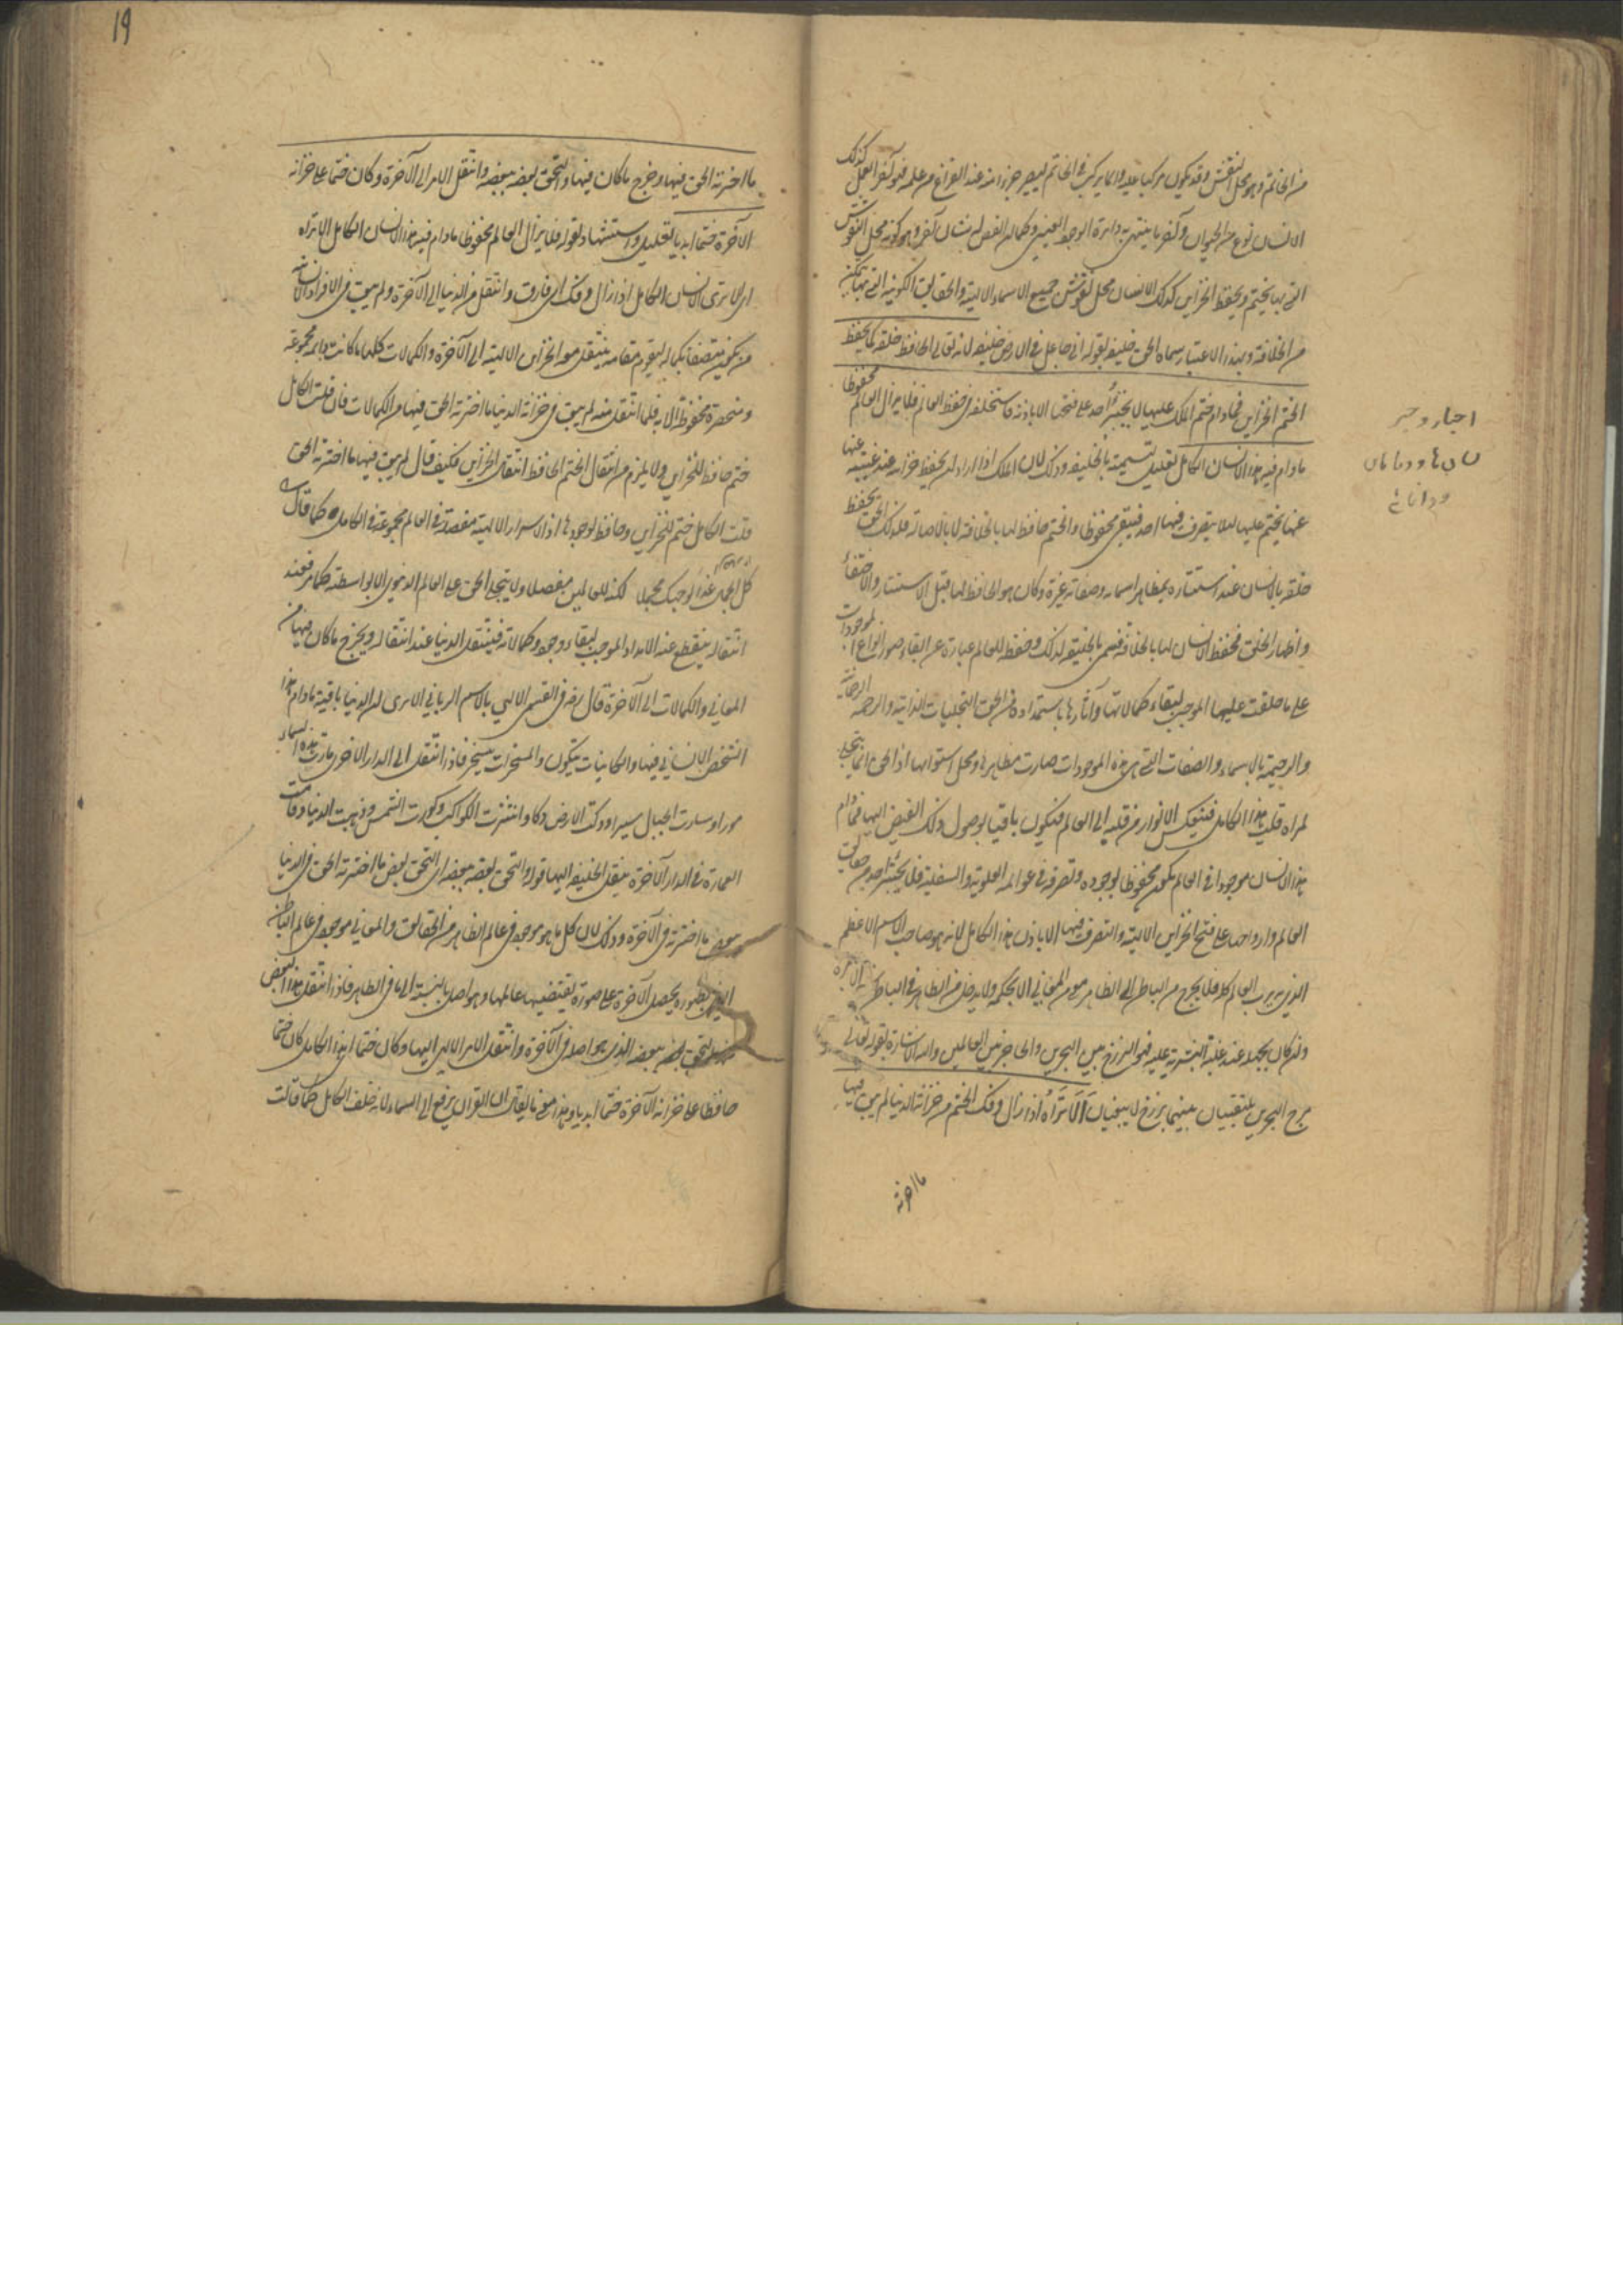 من الخاتم وهو محل النقش وقد يكون مركبا عليه وانما يركب في الخاتم ليصير جزءا منه عند الفراغ من عمله فهو آخر العمل كذلك
الانسان نوع من الحيوان وآخر ما ينتهي به دائرة الوجود العيني وكما ان الفص له شان آخر وهو كونه محل النقوش
التي بها يختم ويحفظ الخزاين كذلك الانسان محل نقوش جميع الاسماء الالهية والحقايق الكونية التي بها يتمكن
من الخلافة وبهذا الاعتبار سماه الحق خليفة بقوله اني جاعل في الارض خليفة لانه تعالى الحافظ خلقه كما يحفظ
الختم الخزاين فما دام ختم الملك عليها لا يجسر احد على فتحها الا باذنه فاستخلفه في حفظ العالم فلا يزال العالم محفوظا
ما دام فيه هذا الانسان الكامل تعليل تسميته بالخليفة وذلك لان الملك اذا اراد ان يحفظ خزانه عند غيبته عنها
عنها يختم عليها لئلا يتصرف فيها احد فيبقى محفوظا والختم حافظ لها بالخلافة لا بالاصالة فكذلك الحق يحفظ
خلقه بالانسان عند استتاره بمظاهر اسمائه وصفاته عزة وكان هو الحافظ لها قبل الاستتار والاختفاء
واظهار الخلق فحفظ الانسان لها بالخلافة فسمي بالخليفة لذلك وحفظه للعالم عبارة عن ابقاء صور انواع الموجودات
على ما خلقت عليها الموجب لبقاء كمالاتها وآثارها باستمداده من الحق التجليات الذاتية والرحمة الرحمانية
والرحيمية بالاسماء والصفات التي هي هذه الموجودات صارت مظاهرها ومحل استوائها اذ الحق انما يتجلى
لمرآة قلب هذا الكامل فتنعكس الانوار من قلبه الى العالم فيكون باقيا بوصول ذلك الفيض اليها فما دام
هذا الانسان موجودا في العالم يكون محفوظا بوجوده وتصرفه في عوالمه العلوية والسفلية فلا يجسر احد من حقايق
العالم وارواحها على فتح الخزاين الالهية والتصرف فيها الا باذن هذا الكامل لانه هو صاحب الاسم الاعظم
الذي به يرب العالم كله فلا يخرج من الباطن الى الظاهر معنى من المعاني الا بحكمه ولا يدخل من الظاهر في الباطن شيء الا بامره
وان كان يجهله عند غلبة البشرية عليه فهو البرزخ بين البحرين والحاجز بين العالمين واليه الاشارة بقوله تعالى
مرج البحرين يلتقيان بينهما برزخ لا يبغيان الا تراه اذا زال وفك الختم من خزانة الدنيا لم يبق فيها
ما اختزنه
ما اختزنه الحق فيها وخرج ما كان فيها والتحق بعضه ببعضه وانتقل الامر الى الآخرة وكان ختما على خزانة
الآخرة ختما ابديا تعليل واستشهاد لقوله فلا يزال العالم محفوظا ما دام فيه هذا الانسان الكامل الا تراه
اي الا ترى الانسان الكامل اذا زال وفك اي فارق وانتقل من الدنيا الى الآخرة ولم يبق في الافراد الانسانية
من يكون متصفا بكماله ليقوم مقامه ينتقل معه الخزاين الالهية الى الآخرة والكمالات كلها ما كانت قائمة مجموعة
ومنحصرة محفوظة الا به فلما انتقل منه لم يبق في خزانة الدنيا ما اختزنه الحق فيها من الكمالات فان قلت الكامل
ختم حافظ للخزاين ولا يلزم من انتقال الختم الحافظ انتقال الخزاين فكيف قال لم يبق فيها ما اختزنه الحق
قلت الكامل ختم للخزاين وحافظ لوجودها اذ الاسرار الالهية مفصلة في العالم مجموعة في الكامل كما قال
كل الجمال غدا لوجهك مجملا لكنه للعالمين مفصلا ولا يتجلى الحق على العالم الدنيوي الا بواسطته كما مر فعند
انتقاله ينقطع عنه الامداد الموجب لبقاء وجوده وكمالاته فينتقل الدنيا عند انتقاله ويخرج ما كان فيها من
المعاني والكمالات الى الآخرة قال رضه في القسم الالهي بالاسم الرباني الا ترى ان الدنيا باقية ما دام هذا
الشخص الانساني فيها والكاينات يتكون والمسخرات يتسخر فاذا انتقل الى الدار الاخرى مارت هذه السماء
مورا وسارت الجبال سيرا ودكت الارض دكا وانتثرت الكواكب وكورت الشمس وذهبت الدنيا وقامت
العمارة في الدار الآخرة بنقل الخليفة اليها قوله والتحق بعضه ببعضه اي التحق بعض ما اختزنه الحق في الدنيا
ببعض ما اختزنه في الآخرة وذلك لان كل ما هو موجود في عالم الظاهر من الحقايق والمعاني موجود في عالم الباطن
يحصل الآخرة على صورة يقتضيها عالمها وهو اصل بالنسبة الى ما في الظاهر فاذا انتقل هذا البعض
التحق ببعضه الذي هو اصله في الآخرة وانتقل الامر الالهي اليها وكان ختما اي هذا الكامل كان ختما
حافظا على خزانة الآخرة ختما ابديا وهذا معنى ما يقال ان القرآن يرفع الى السماء لانه خلق الكامل كما قالت